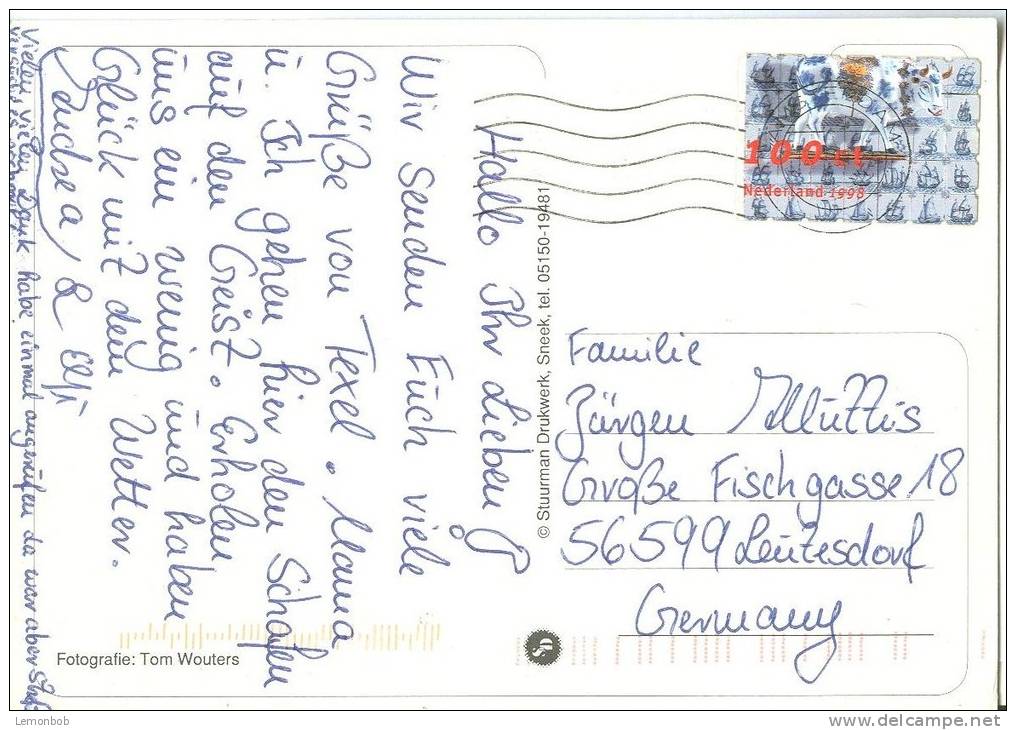 Hallo Ihr Lieben!
Wir senden Euch viele
Grüße von Texel. Mama
u. Ich gehen hier den Schafen
auf den Geist. Erholen
uns ein wenig und haben
Glück mit dem Wetter.
& Elfi
Vielen, vielen Dank habe einmal angerufen da war aber
© Stuurman Drukwerk, Sneek, tel. 05150-19481
Fotografie: Tom Wouters
SD
100 ct
Nederland 1998
Familie
Jürgen Muttis
Große Fischgasse 18
56599 Leutesdorf
Germany
Lemonbob
www.delcampe.net